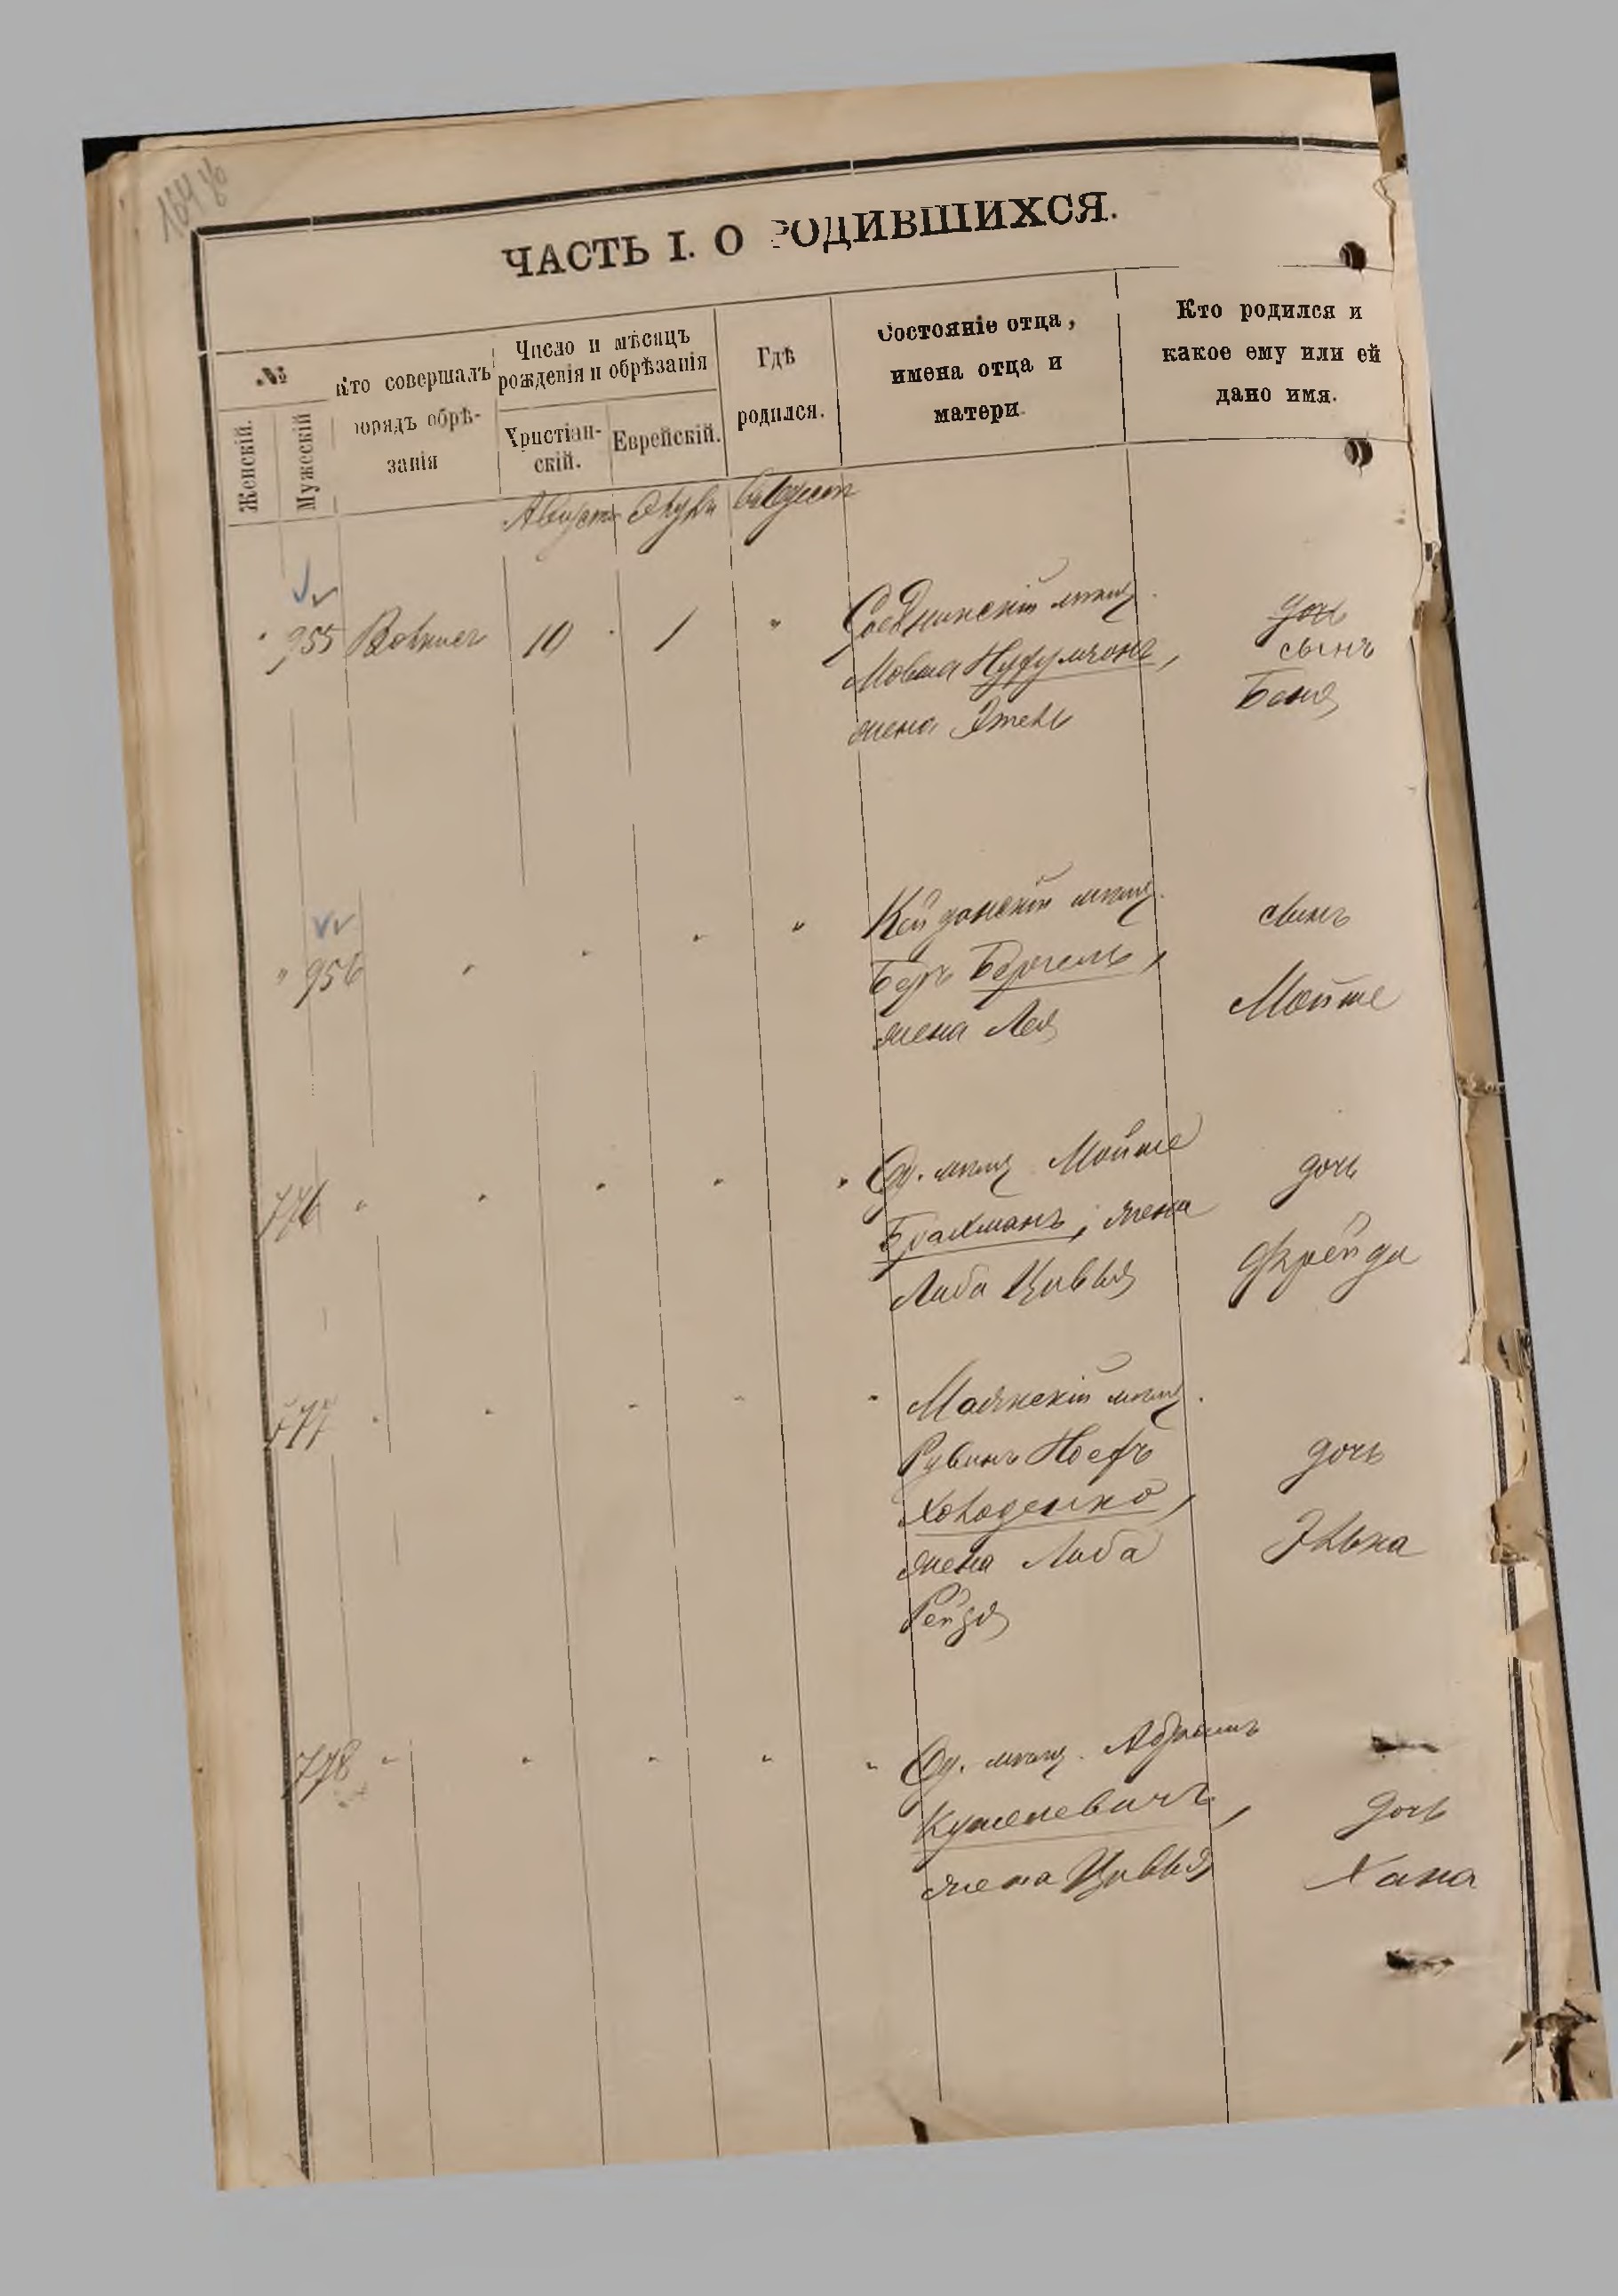 ЧАСТЬ I. О РОДИВШИХСЯ.
№
Женскій.
Мужескій
Кто совершалъ
обрядъ обрѣ-
занія
Число и мѣсяцъ
рожденія и обрѣзанія
Христіан-
скій.
Еврейскій.
Гдѣ
родился.
Состояніе отца,
имена отца и
матери.
Кто родился и
какое ему или ей
дано имя.
Августъ
955
10
1
мѣщ.
Мовша
жена Этель
дочь
сынъ
956
Кейданскій мѣщ.
Беръ
жена Лея
сынъ
Мойше
776
Од. мѣщ. Мойше
Брахманъ, жена
Либа Цивья
дочь
Фрейда
777
мѣщ.
Рувинъ Іосефъ
Холоденко,
жена Либа
Рейзя
дочь
Элька
778
Од. мѣщ. Абрамъ
Кушелевичъ,
жена Цивья
дочь
Хана